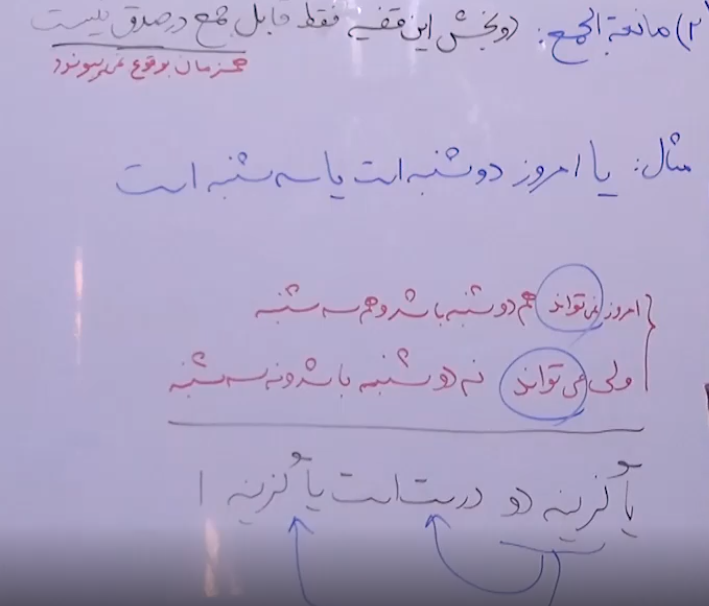 ۲) مانعة الجمع: دو بخش این قضیه فقط قابل جمع در صدق نیست
همزمان بوقوع نمی‌پیوندد
مثال: یا امروز دوشنبه است یا سه شنبه است
امروز نمی‌تواند هم دوشنبه باشد و هم سه شنبه
ولی می‌تواند نه دوشنبه باشد و نه سه شنبه
یا گزینه دو درست است یا گزینه ۱